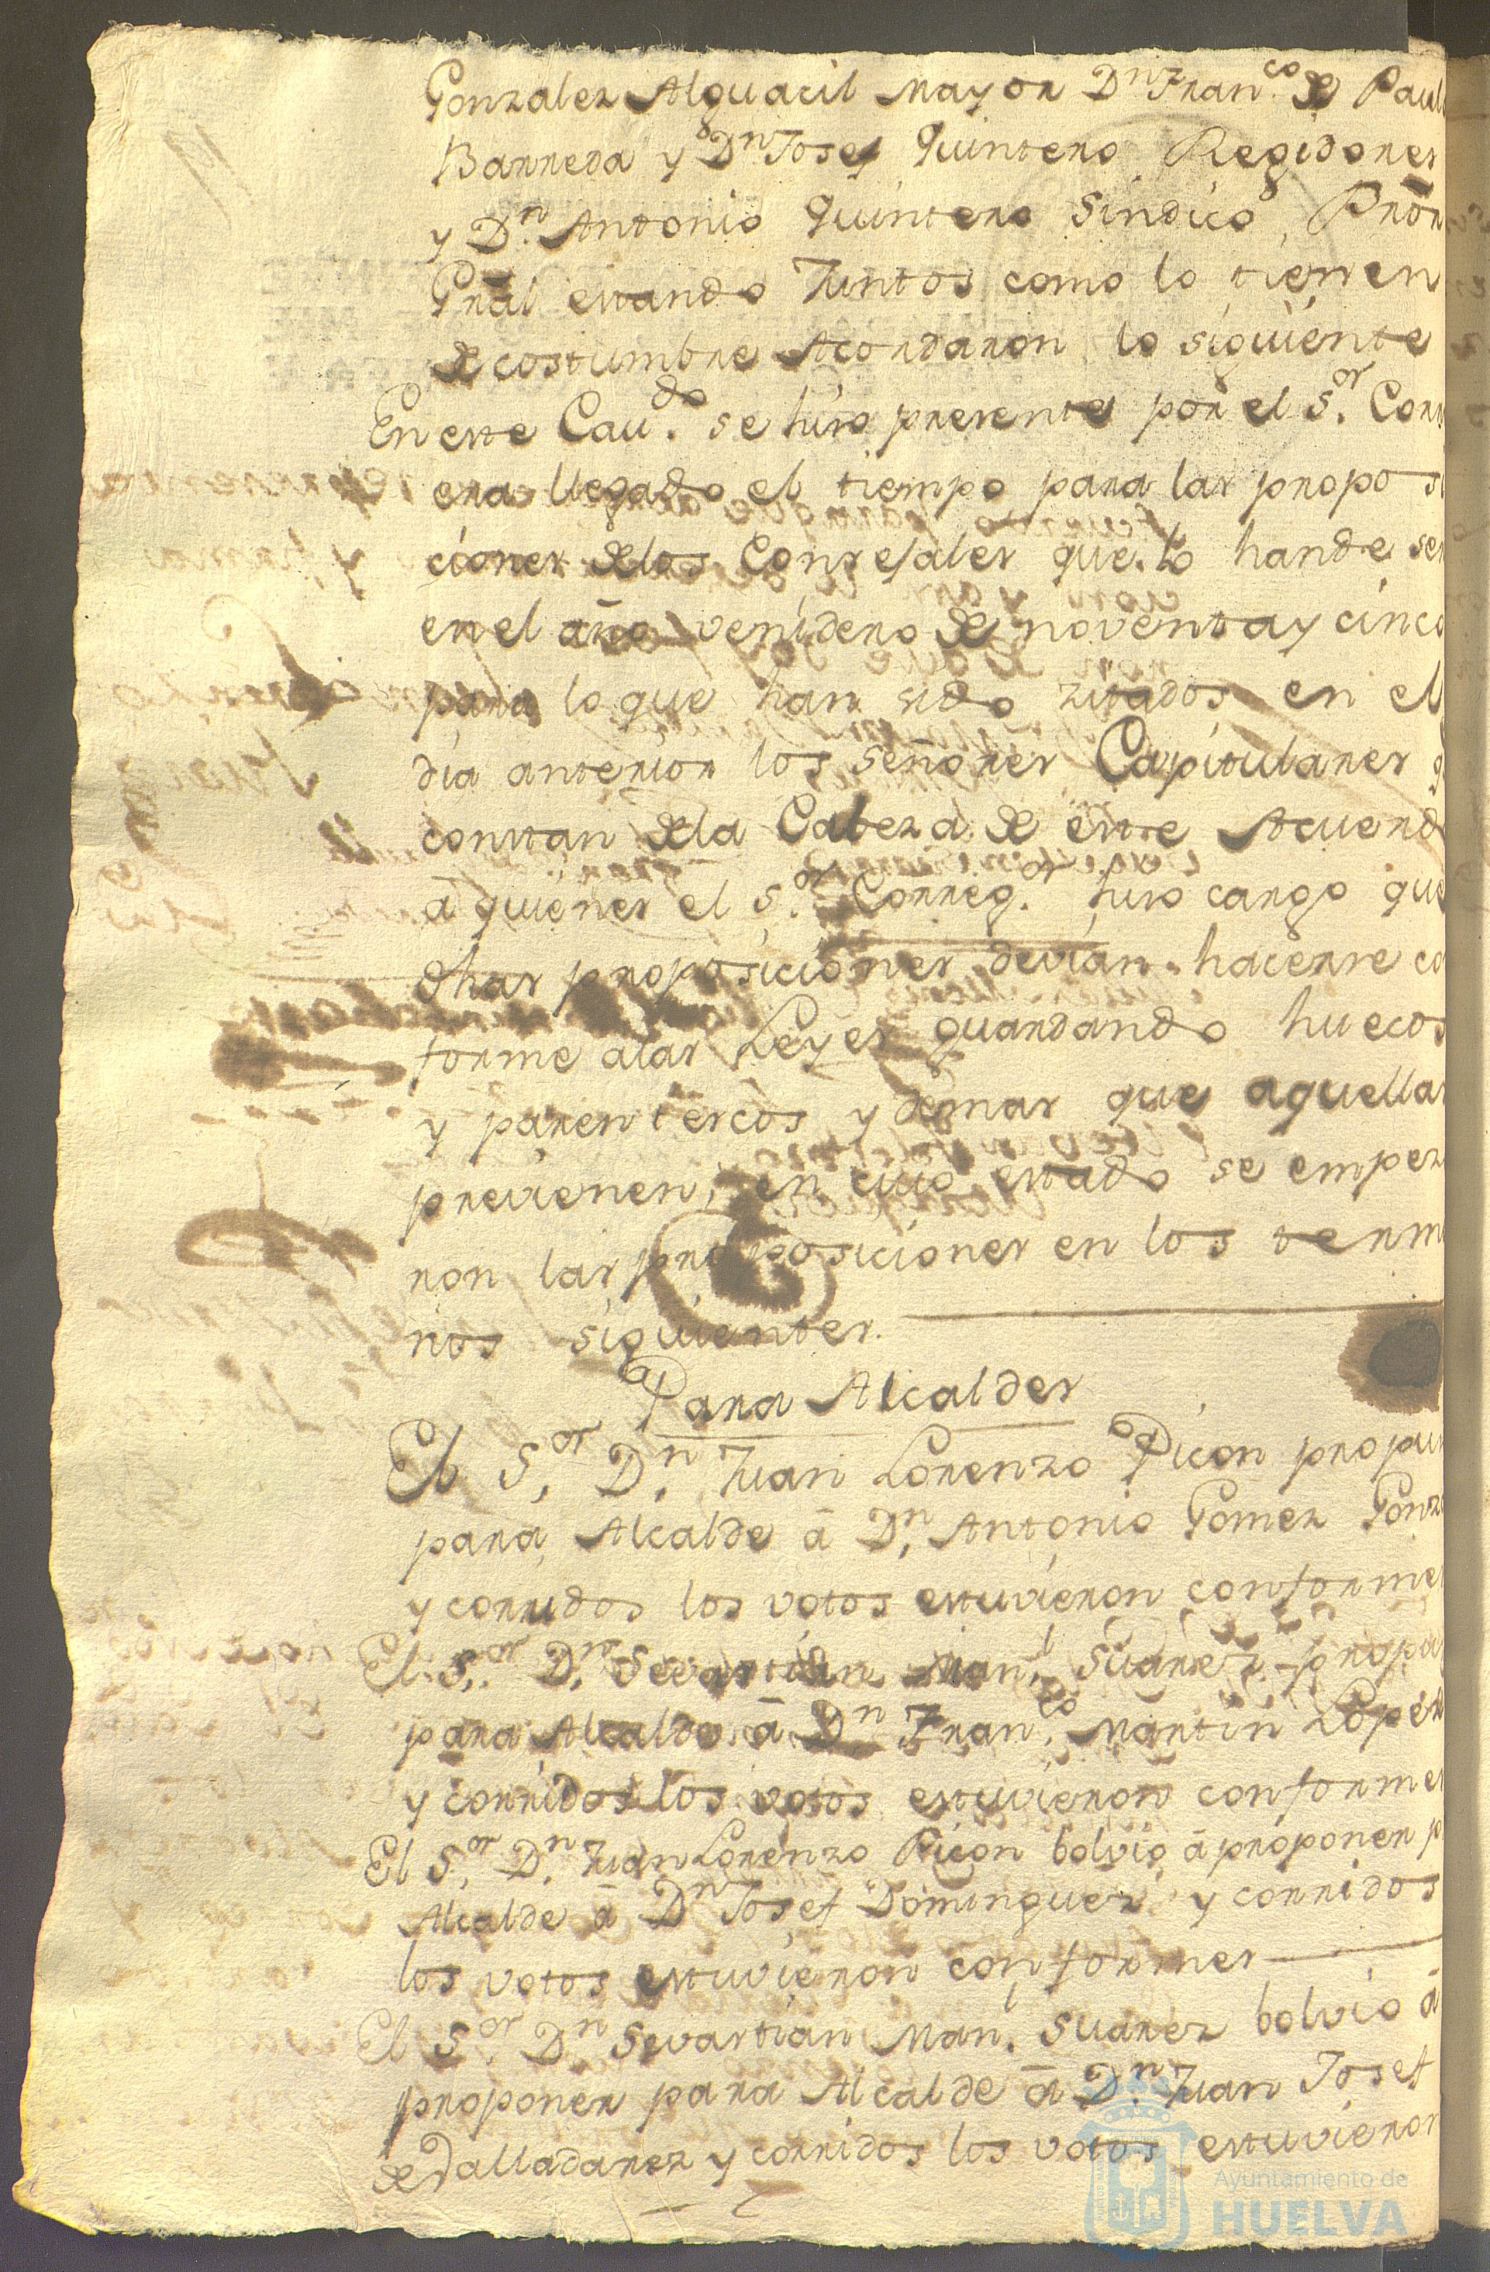 Gonzalez Alguacil mayor Dn Franco. de Paul
Barreda y Dn Josef Quintero Regidores
y Dn. Antonio Quintero Sindico, Pror
Gral estando Juntos como lo tienen
de costumbre Acordaron lo siguiente
En este Cavdo. se hiso presente por el Sor. Corr
era llegado el tiempo para las proposi
ciones delos Consejales que lo hande ser
en el año venidero de noventa y cinco
para lo que han sido zitados en el
dia anterior los señores Capitulares q
constan dela Cabeza de este Acuerd
a quienes el Sor. Correg.or hiso cargo que
dhas proposiciones devian hacerse co
forme alas Leyes guardando huecos
y parentescos y demas que aquellas
previenen, en cuio estado se empez
ron las proposiciones en los termi
nos siguientes.
Para Alcaldes
El Sor. Dn. Juan Lorenzo Picon propu
para Alcalde â Dn. Antonio Gomez Gonz
y corridos los votos estuvieron conformes
El Sor. Dn. Sevastian Manl. Suarez propu
para Alcalde â Dn Franco. Martin Lopez
y corridos los votos estuvieron conformes
El Sor. Dn. Juan Lorenzo Picon bolvio â proponer p
Alcalde â Dn Josef Dominguez y corridos
los votos estuvieron conformes
El Sor. Dn Sevastian Manl. Suarez bolvio â
proponer para Alcalde â Dn. Juan Josef
de Valladares y corridos los votos estuvieron
Ayuntamiento de
HUELVA